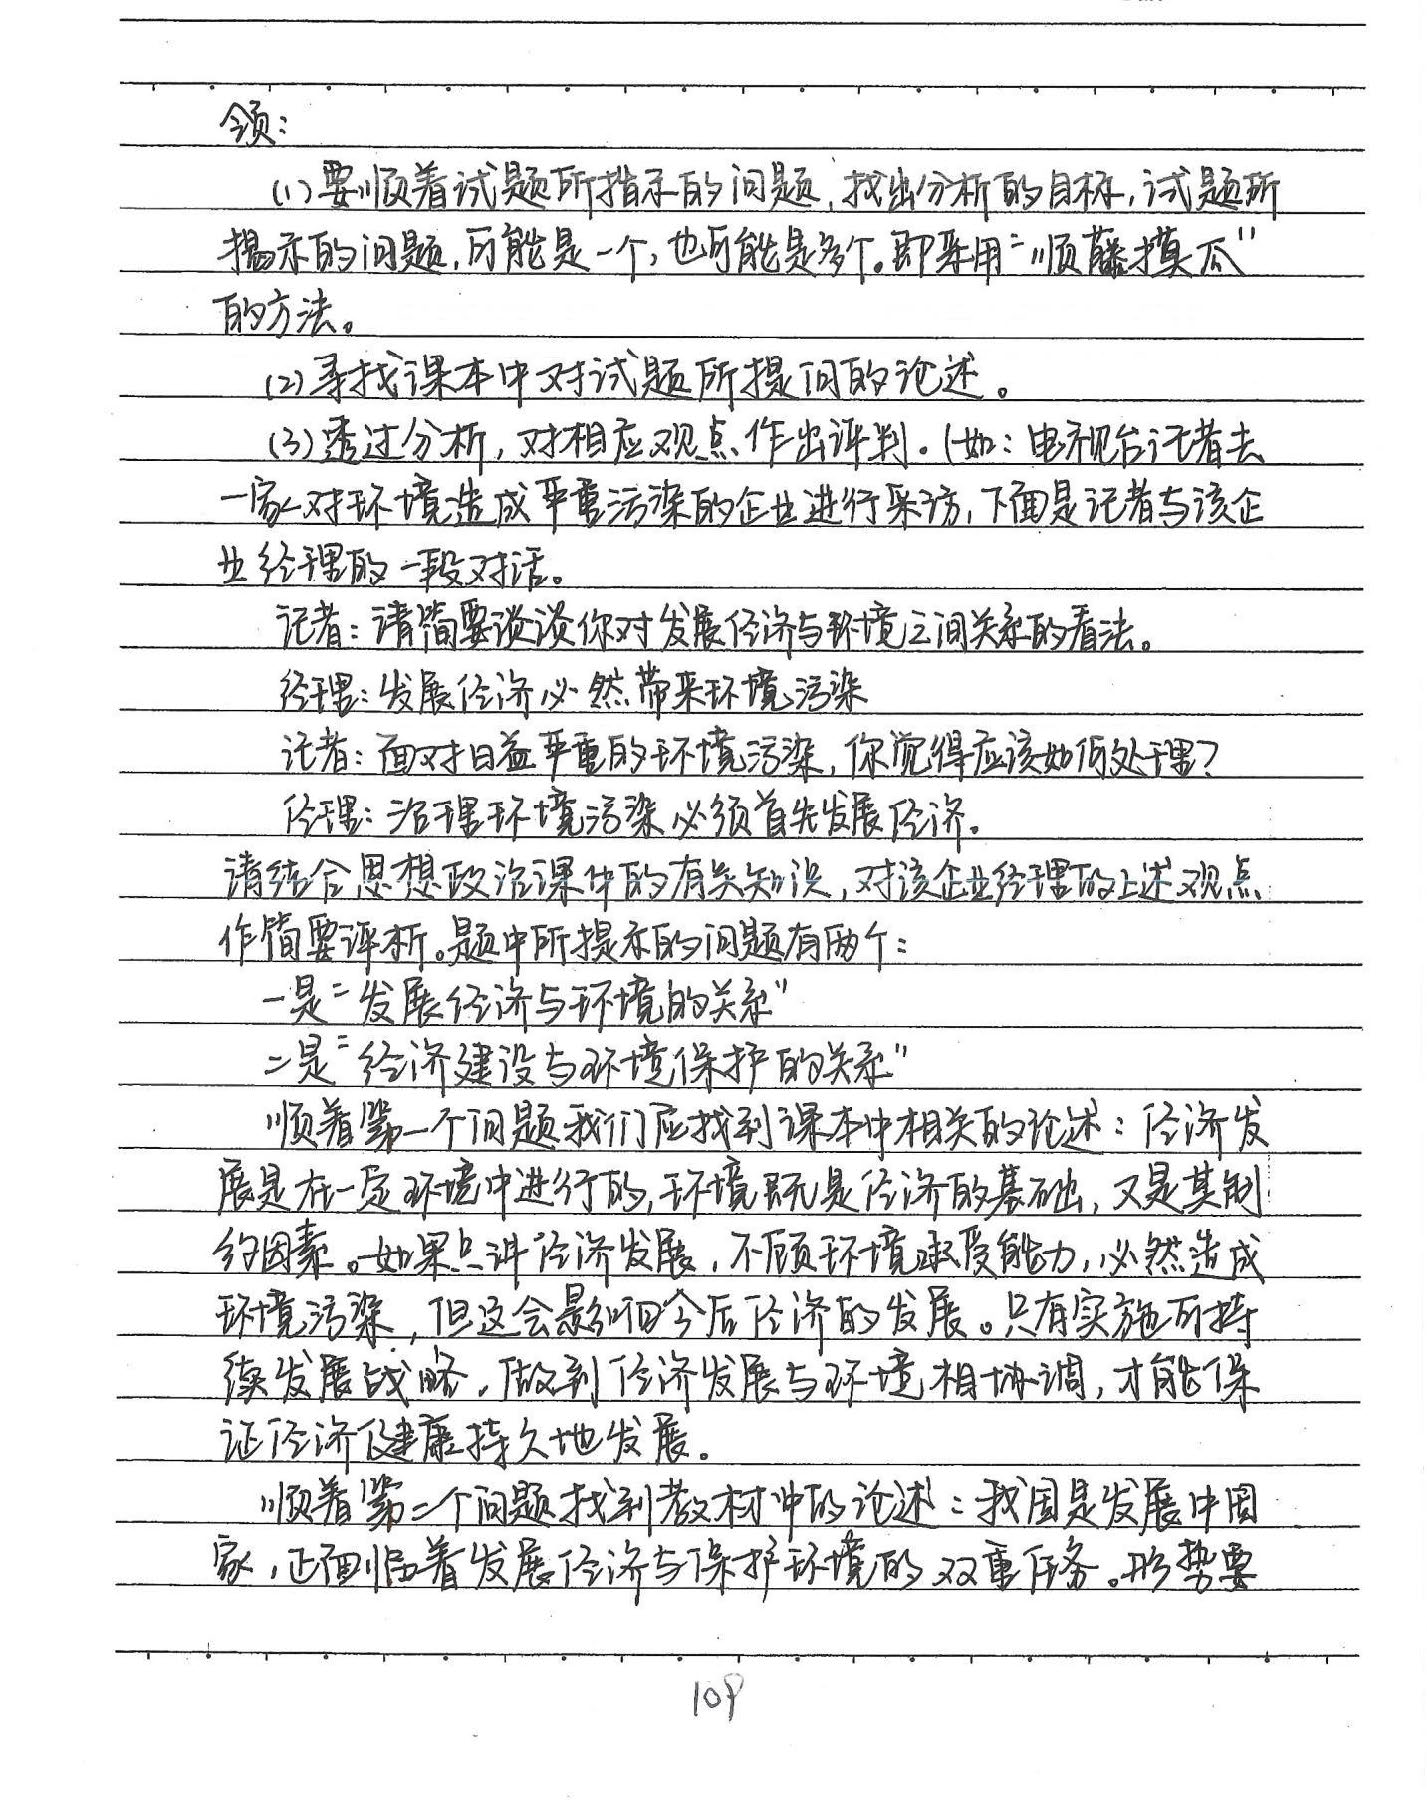 领：
(1)要顺着试题所指示的问题，找出分析的目标，试题所
揭示的问题，可能是一个，也可能是多个。即采用"顺藤摸瓜"
的方法。
(2)寻找课本中对试题所提问的论述。
(3)透过分析，对相应观点作出评判。(如：电视台记者去
一家对环境造成严重污染的企业进行采访，下面是记者与该企
业经理的一段对话。
记者：请简要谈谈你对发展经济与环境之间关系的看法。
经理：发展经济必然带来环境污染
记者：面对日益严重的环境污染，你觉得应该如何处理？
经理：治理环境污染必须首先发展经济。
请结合思想政治课中的有关知识，对该企业经理的上述观点
作简要评析。题中所提示的问题有两个：
一是"发展经济与环境的关系"
二是"经济建设与环境保护的关系"
顺着第一个问题我们应找到课本中相关的论述：经济发
展是在一定环境中进行的，环境既是经济的基础，又是其制
约因素。如果只讲经济发展，不顾环境承受能力，必然造成
环境污染，但这会影响今后经济的发展。只有实施可持
续发展战略，做到经济发展与环境相协调，才能保
证经济健康持久地发展。
顺着第二个问题找到教材中的论述：我国是发展中国
家，正面临着发展经济与保护环境的双重任务。形势要
109